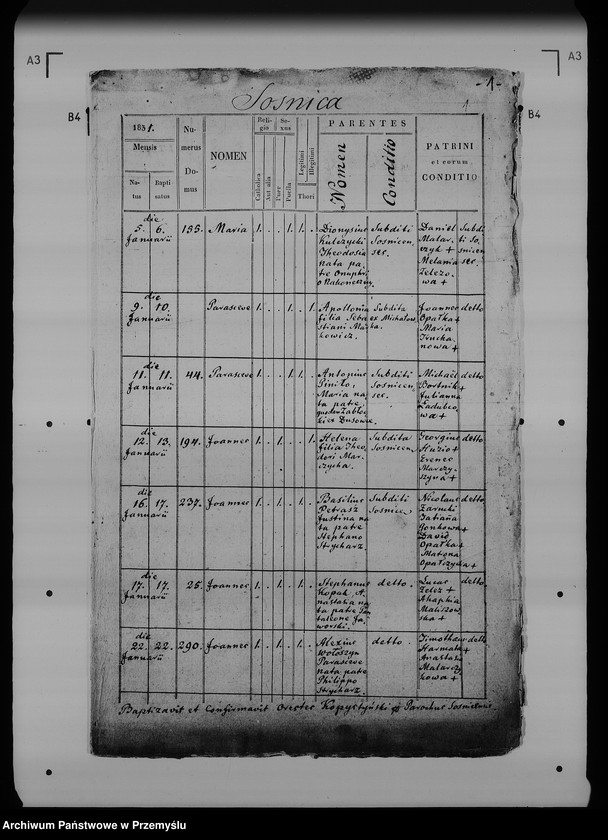 A3
A3
B4
B4
- 1 -
Sosnica
1
1831.
Mensis
Na-
tus
Bapti
satus
Nu-
merus
Do-
mus
NOMEN
Reli-
gio
Catholica
Aut alia
Se-
xus
Puer
Puella
Legitimi
Illegitimi
Thori
PARENTES
Nomen
Conditio
PATRINI
et eorum
CONDITIO
die
5. 6.
Januarii
135.
Maria
1. . . 1. 1.
Dionysius
Kulczycki
Theodosia
nata pa-
tre Onuphri
o Nakoneczny.
Subditi
Sosnicen,
ses.
Daniel
Malar-
czyk +
Melania
Zelezo-
wa +
Subdi-
ti So-
snicen
ses.
die
9. 10.
Januarii
Parasceve
1. . . 1. . 1.
Apollonia
filia Seba-
stiani
Subdita
ex Michalow
ka.
Joannes
Opałka +
Maria
nowa +
detto
die
11. 11.
Januarii
44.
Parasceve
1. . . 1. 1.
Antonius
Piniło,
Maria na-
ta patre
Subditi
Sosnicen,
ses.
Michaël
Bortnik +
Julianna
Ladubco-
wa +
detto
die
12. 13.
Januarii
194.
Joannes
1. . 1. . . 1.
Helena
filia Theo-
dori Mar-
czycha.
Subdita
Sosnicen,
Georgius
Huzio +
Marczy-
szyna +
detto
die
16. 17.
Januarii
237.
Joannes
1. . 1. . 1.
Basilius
Petrasz
Justina na-
ta patre
Stephano
Stycharz.
Subditi
Sosnicen
Nicolaus
Zarucki
Tatiana
Jonkowa +
David
Opałka +
Matrona
Opałczycha +
detto
die
17. 17.
Januarii
25.
Joannes
1. . 1. . 1.
Stephanus
Kopak, A-
nastasia na-
ta patre Pan-
taleone Ja-
worski.
detto.
Lucas
Zelez +
Ahaphia
Maliszow-
ska +
detto
die
22. 22.
Januarii
290.
Joannes
1. . 1. . 1.
Alexius
Wołoszyn
Parasceve
nata patre
Philippo
Stycharz.
detto.
Timotheus
Harmata +
Anastasia
Malarczy-
kowa +
detto
Baptizavit et Confirmavit Orestes Kopystyński Parochus Sosnicensis.
Archiwum Państwowe w Przemyślu